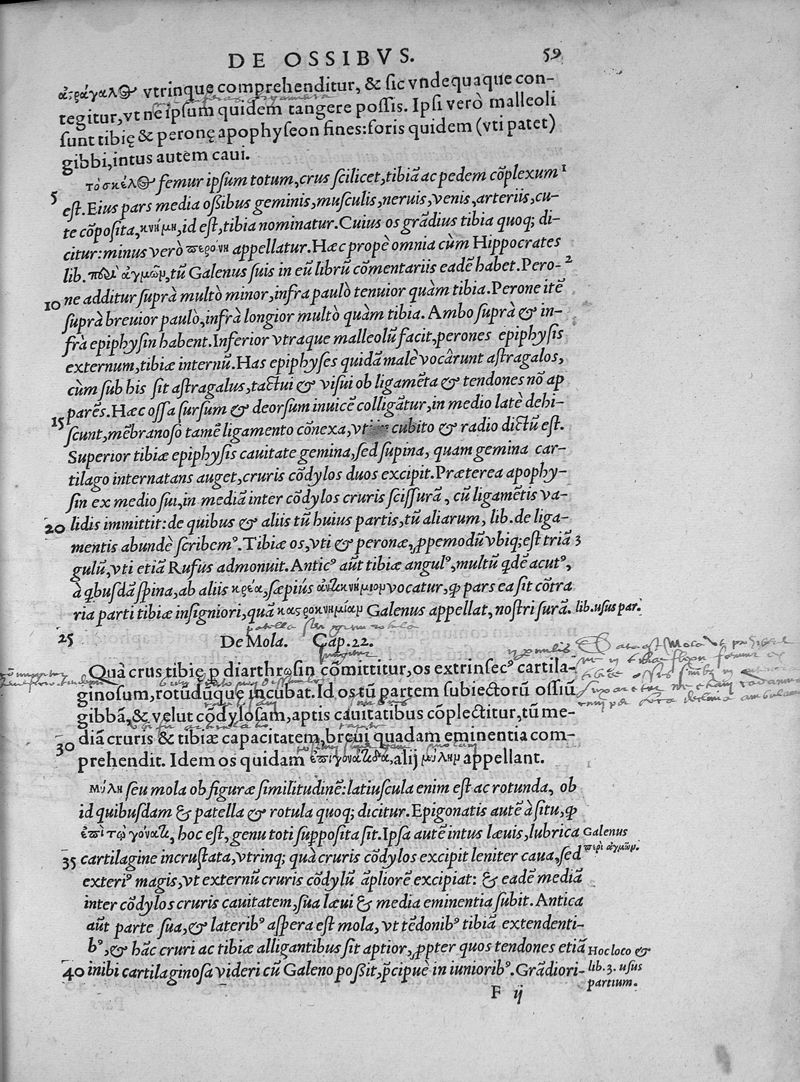 DE OSSIBVS. 59
vtrinque comprehenditur, & sic vndequaque con-
tegitur, vt ne ipsum quidem tangere possis. Ipsi verò malleoli
sunt tibię & peronę apophyseon fines: foris quidem (vti patet)
gibbi, intus autem caui.
femur ipsum totum, crus scilicet, tibiā ac pedem cōplexum 1
5 est. Eius pars media oßibus geminis, musculis, neruis, venis, arteriis, cu-
te cōposita, κνήμη, id est, tibia nominatur. Cuius os grādius tibia quoq; di-
citur: minus verò περονη appellatur. Hæc propè omnia cùm Hippocrates
lib. ἀγμῶν, tū Galenus suis in eū librū cōmentariis eadē habet. Pero- 2
10 ne additur suprà multò minor, infra paulò tenuior quàm tibia. Perone itē
suprà breuior paulò, infrà longior multò quàm tibia. Ambo suprà & in-
frà epiphysin habent. Inferior vtraque malleolū facit, perones epiphysis
externum, tibiæ internū. Has epiphyses quidā malè vocârunt astragalos,
cùm sub his sit astragalus, tactui & visui ob ligamēta & tendones nō ap
parēs. Hæc ossa sursum & deorsum inuicē colligātur, in medio latè dehi-
15 scunt, mēbranoso tamē ligamento cōnexa, vti in cubito & radio dictū est.
Superior tibiæ epiphysis cauitate gemina, sed supina, quam gemina car-
tilago internatans auget, cruris cōdylos duos excipit. Præterea apophy-
sin ex medio sui, in mediā inter cōdylos cruris scissurā, cū ligamētis va-
20 lidis immittit: de quibus & aliis tū huius partis, tū aliarum, lib. de liga-
mentis abundè scribemꝰ. Tibiæ os, vti & peronæ, ꝓpemodū vbiq; est triā 3
gulū, vti etiā Rufus admonuit. Anticꝰ aūt tibiæ angulꝰ, multū qdē acutꝰ,
à qbusdā spina, ab aliis κρέα, sæpiús ἀντικνήμιον vocatur, ꝙ pars ea sit cōtra
ria parti tibiæ insigniori, quā γαστροκνημίαν Galenus appellat, nostri surā. lib. usus par.
25 De Mola. Cap. 22.
Quà crus tibię p diarthrωsin cōmittitur, os extrinsecꝰ cartila-
ginosum, rotundūque incubat. Id os tū partem subiectorū ossiū
gibbā, & velut cōdylosam, aptis cauitatibus cōplectitur, tū me-
30 diā cruris & tibiæ capacitatem, breui quadam eminentia com-
prehendit. Idem os quidam ἐπιγονατίδα, alij μύλην appellant.
μύλη seu mola ob figuræ similitudinē: latiuscula enim est ac rotunda, ob
id quibusdam & patella & rotula quoq; dicitur. Epigonatis autē à situ, ꝙ
ἐπὶ τῷ γόνατι, hoc est, genu toti supposita sit. Ipsa autē intus læuis, lubrica Galenus
35 cartilagine incrustata, vtrinq; quà cruris cōdylos excipit leniter caua, sed περὶ ἀγμῶν.
exteriꝰ magis, vt externū cruris cōdylū āpliorē excipiat: & eadē mediā
inter cōdylos cruris cauitatem, sua læui & media eminentia subit. Antica
aūt parte sua, & lateribꝰ aspera est mola, vt tēdonibꝰ tibiā extendenti-
bꝰ, & hāc cruri ac tibiæ alligantibus sit aptior, ꝓpter quos tendones etiā Hoc loco &
40 inibi cartilaginosa videri cū Galeno poßit, p̄cipuè in iunioribꝰ. Grādiori- lib. 3. usus
partium.
F ij